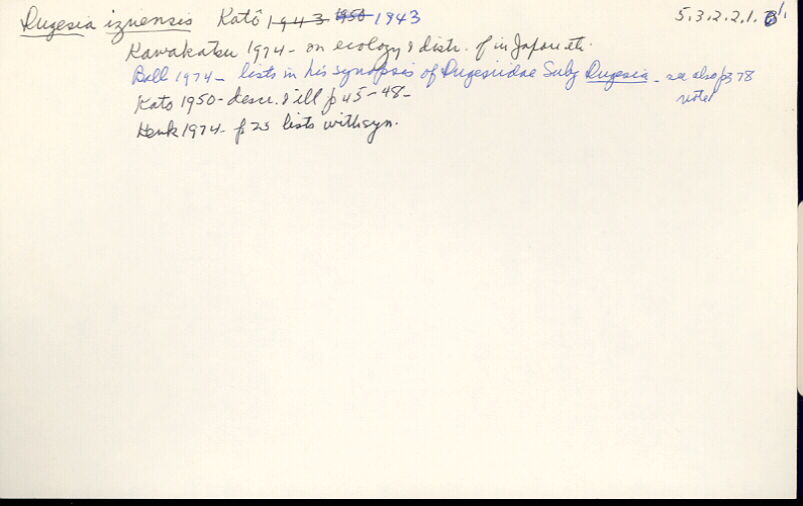 Dugesia izuensis Katô 1943 1950 1943 5.3.2.2.1.
Kawakatsu 1974 - on ecology & distr. of in Japan etc.
Ball 1974 - lists in his synopsis of Dugesiidae Subg Dugesia - see also p378
note!
Kato 1950 - descr. & ill p 45-48 -
Henk 1974 - p 23 lists with syn.